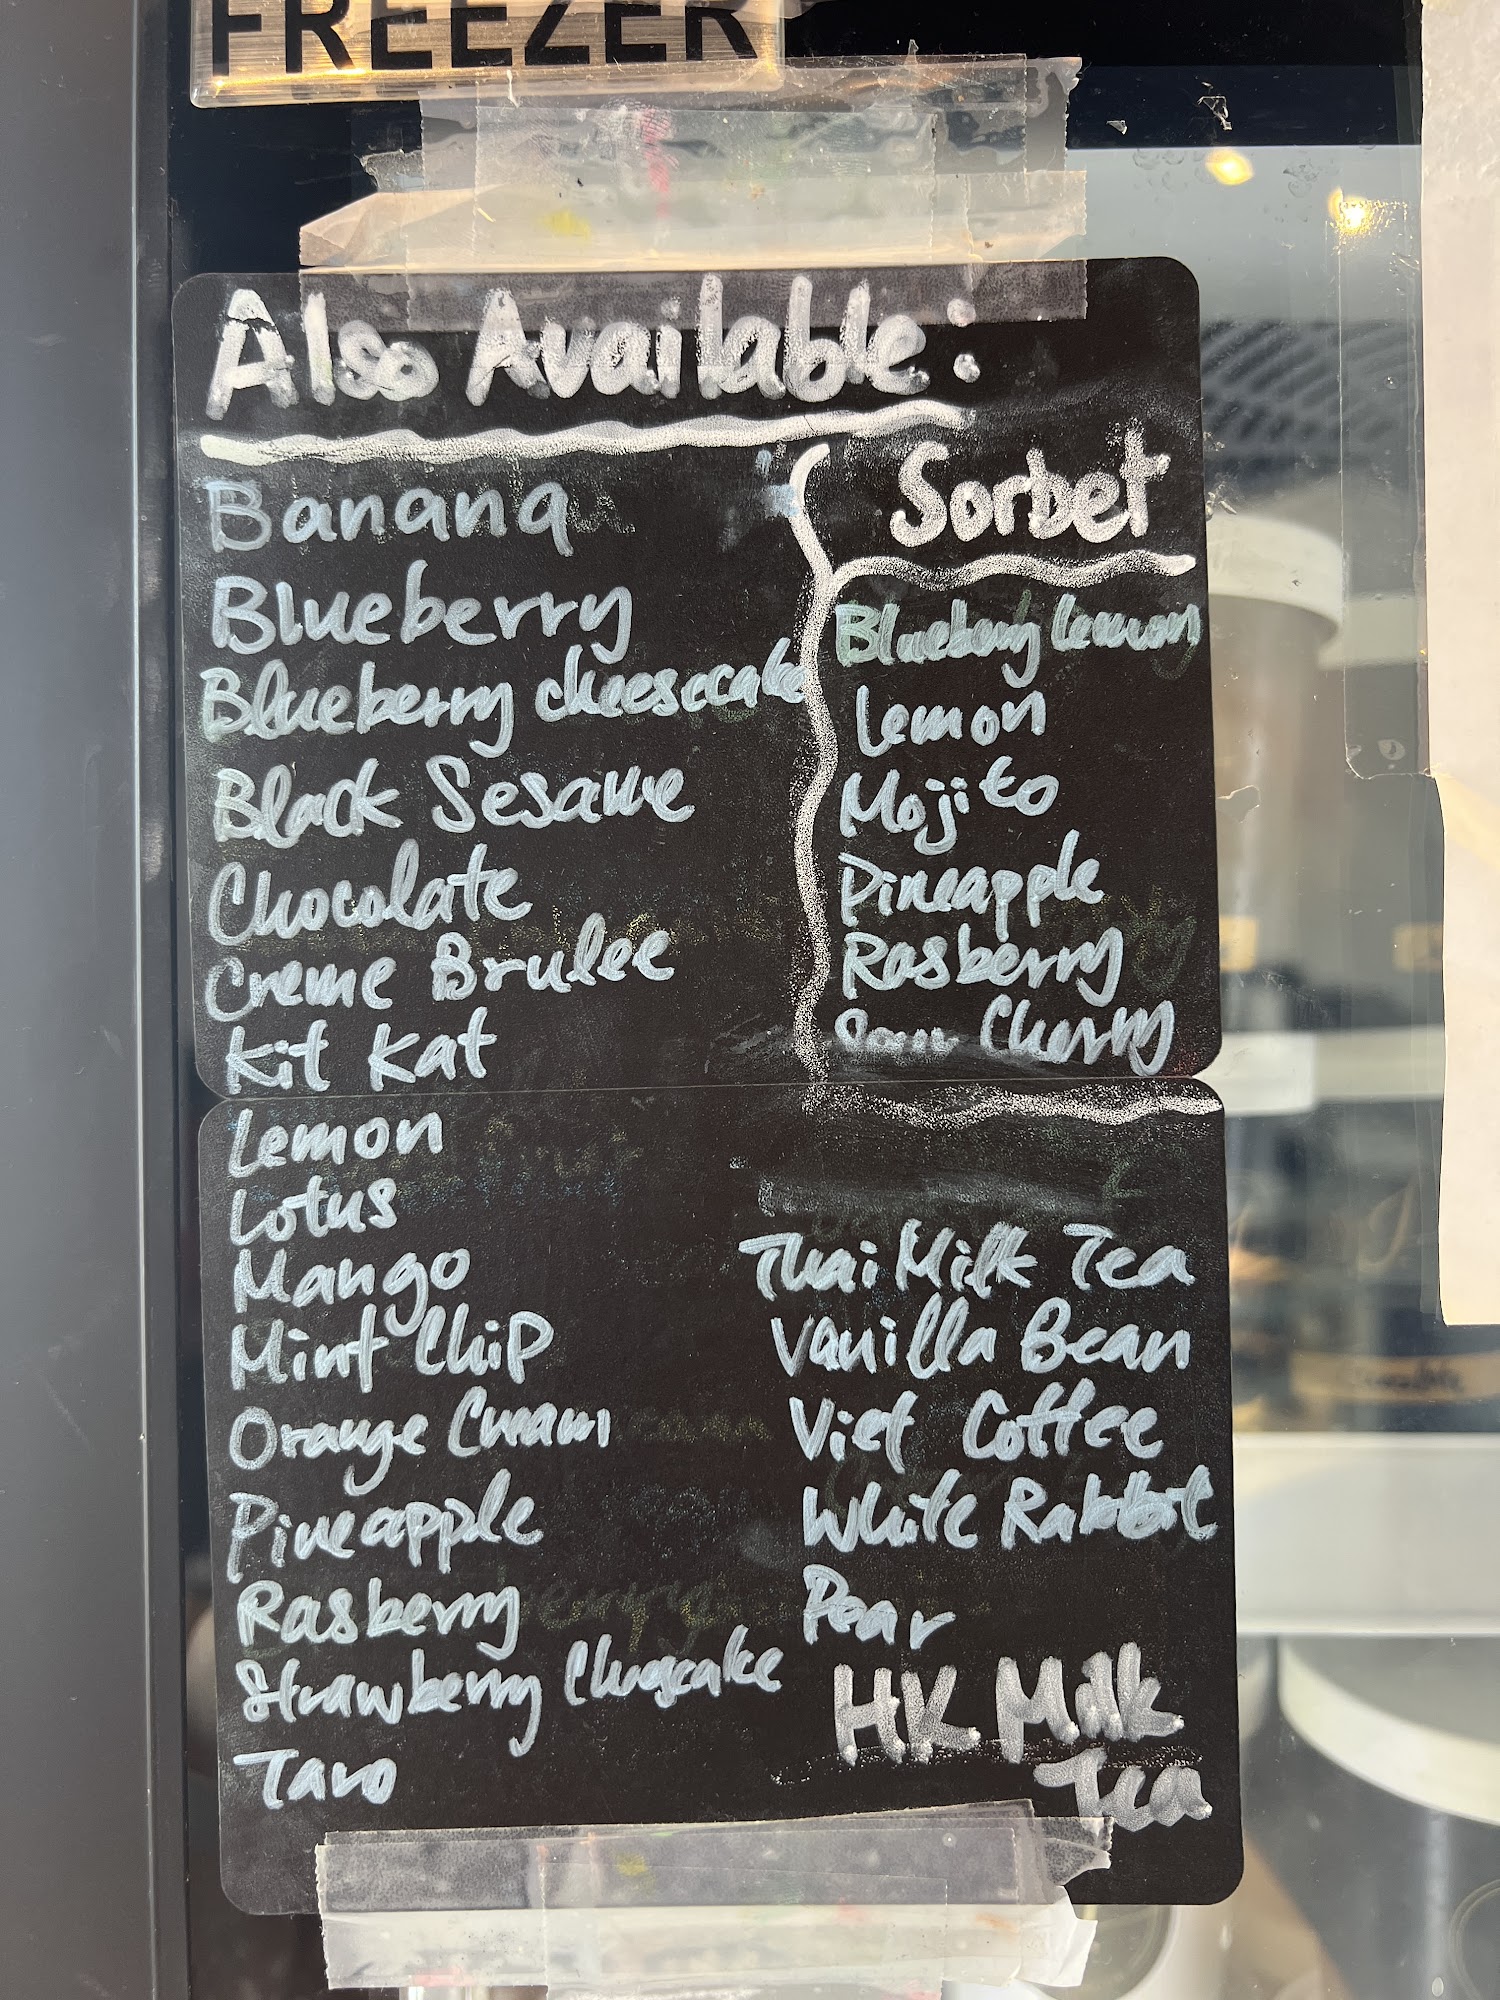 FREEZER
Also Available:
Banana
Blueberry
Blueberry cheesecake
Black Sesame
Chocolate
Creme Brulee
Kit Kat
Lemon
Lotus
Mango
Mint Chip
Orange Cream
Pineapple
Rasberry
Strawberry Cheescake
Taro
Sorbet
Blueberry lemon
Lemon
Mojito
Pineapple
Rasberry
Sour Cherry
Thai Milk Tea
Vanilla Bean
Viet Coffee
White Rabbit
Pear
HK Milk
Tea